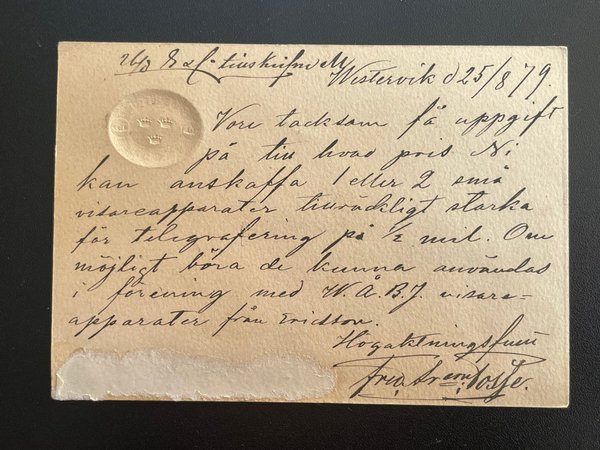 26/8
Westervik d 25/8 79.
Vore tacksam få uppgift
på till hvad pris Ni
kan anskaffa 1 eller 2 små
visareapparater tillräckligt starka
för telegrafering på 1/2 mil. Om
möjligt böra de kunna användas
i förening med W. Å. B. J. visare=
apparater från Ericson.
Högaktningsfull